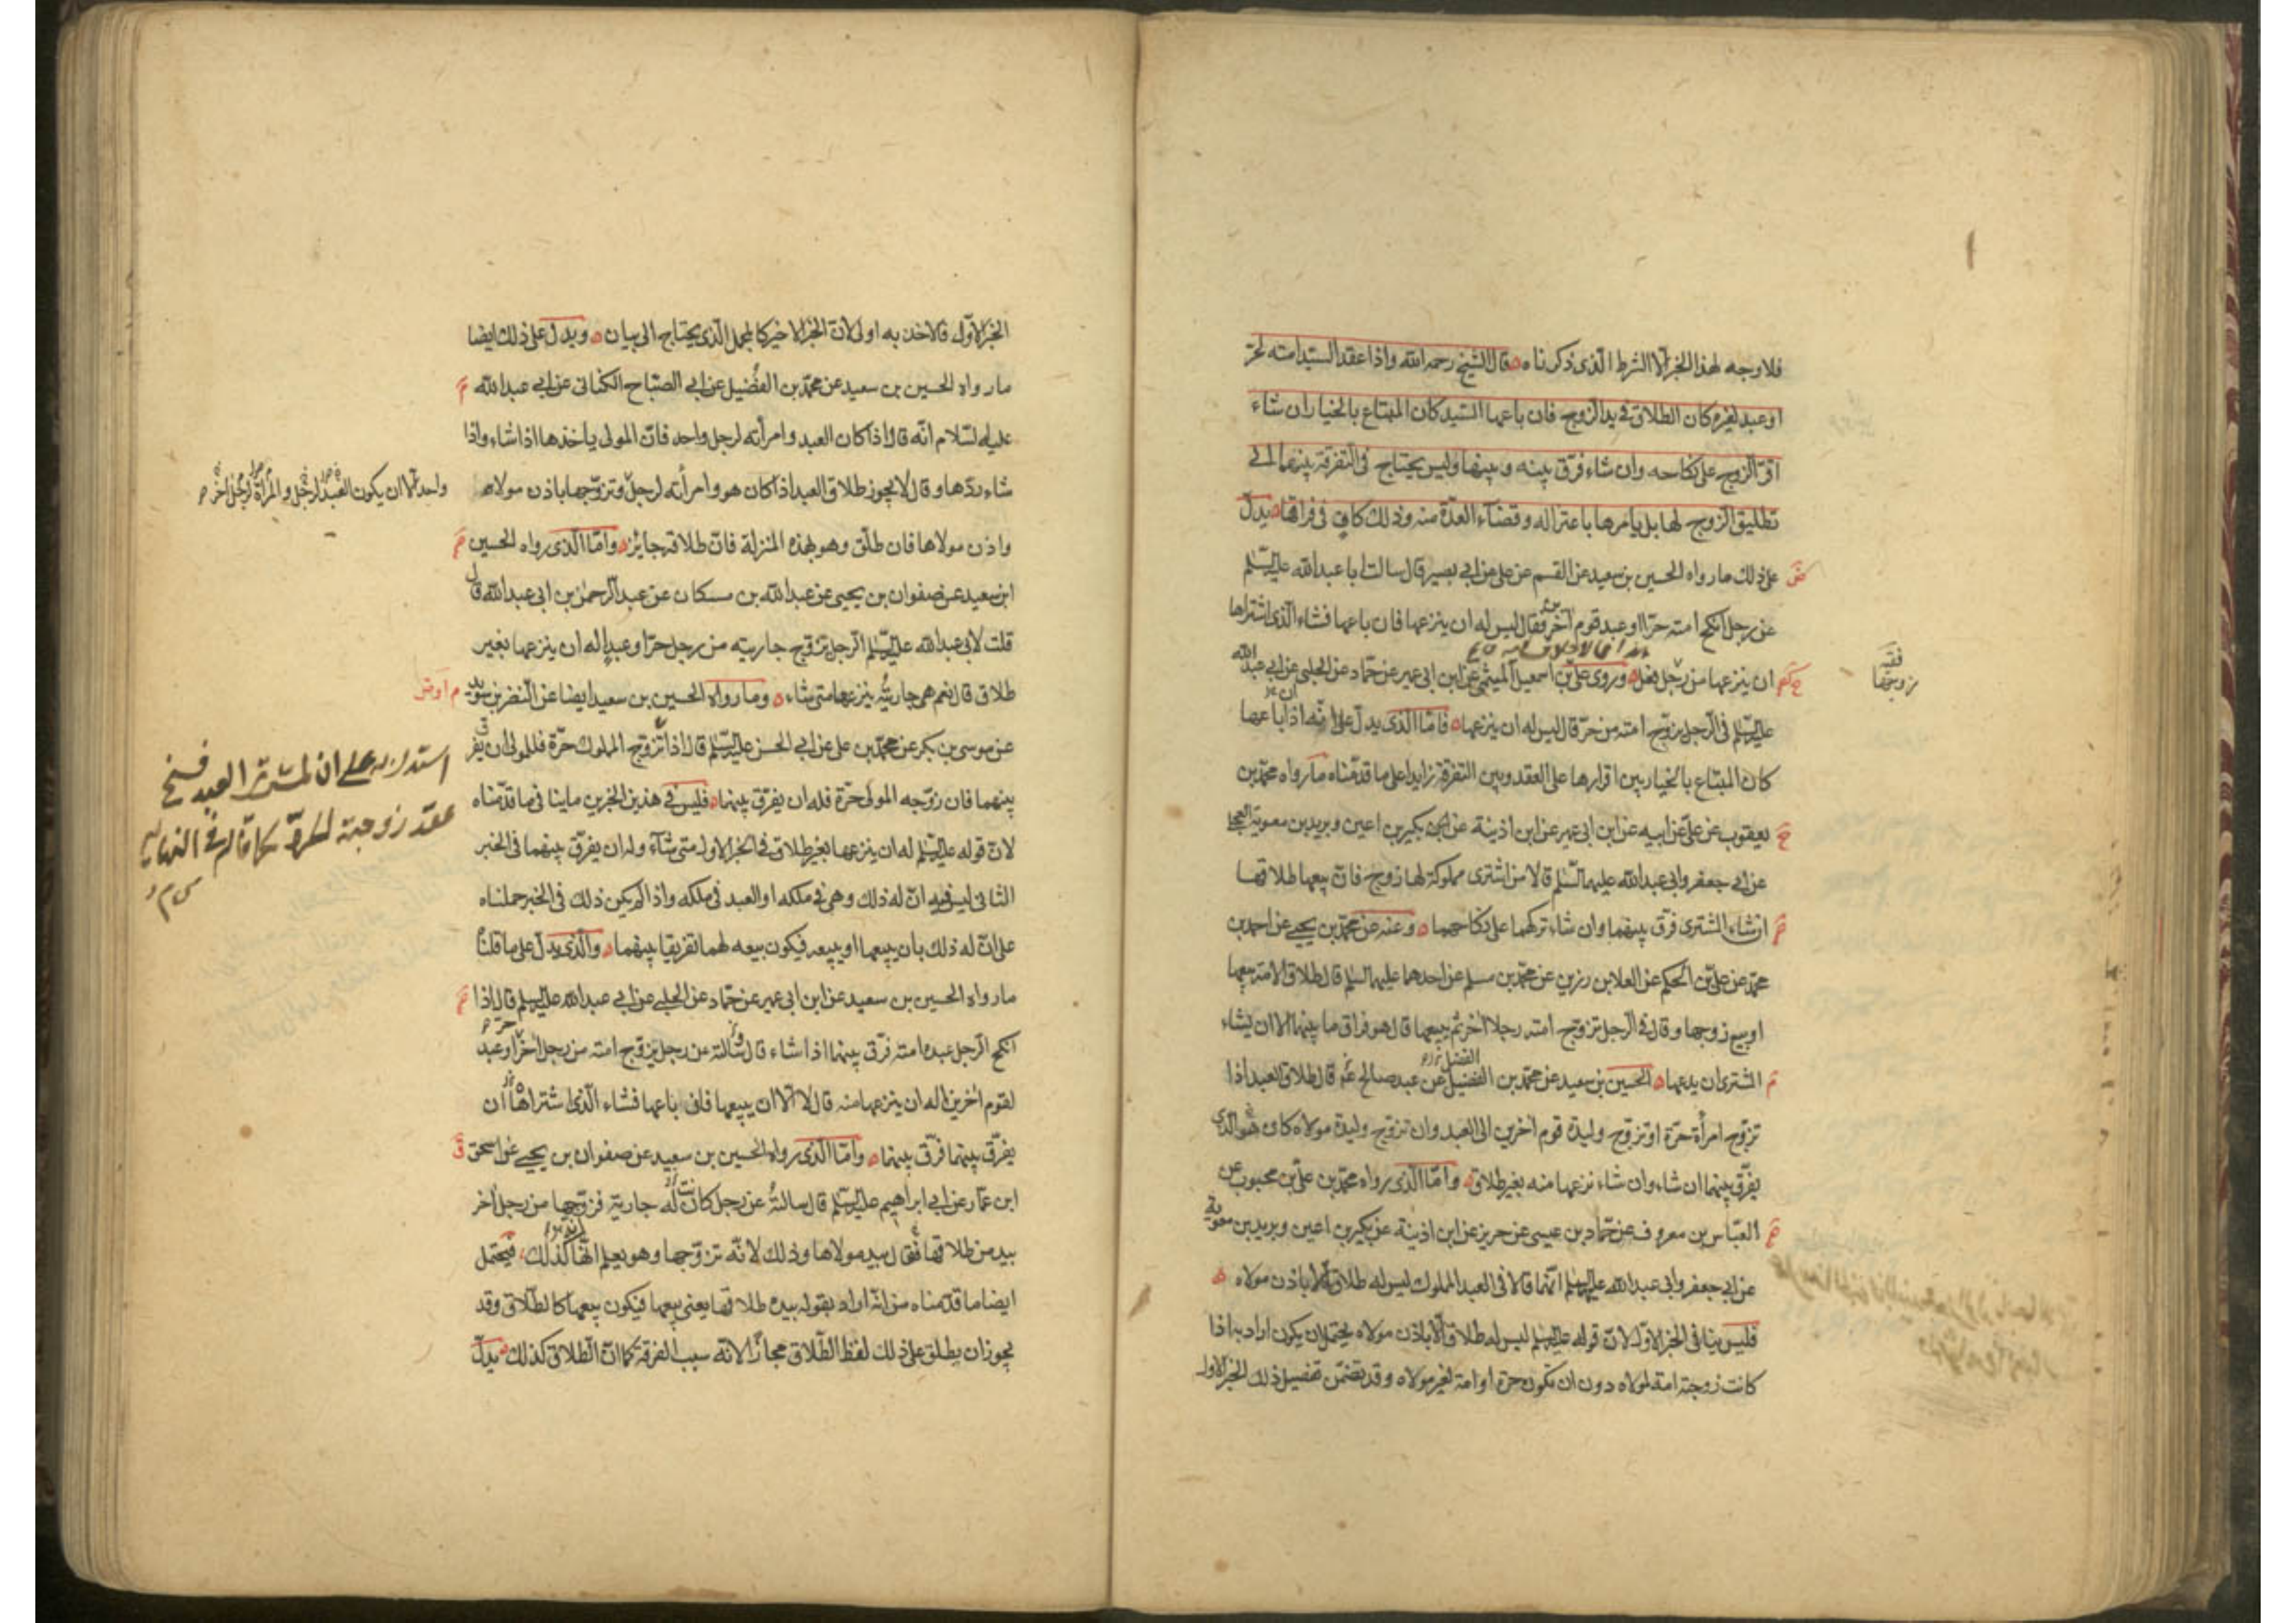 فلا وجه لهذا الخبر الا الشرط الّذى ذكرناه قال الشيخ رحمه الله واذا عقد السيّد امته لحرّ
او عبد لغيره كان الطلاق فى يد الزوج فان باعها السّيد كان المبتاع بالخيار ان شاء
اقرّ الزوج على نكاحه وان شاء فرّق بينه وبينها وليس يحتاج فى التفرقة بينهما الى
تطليق الزوج لها بل يامرها باعتزاله وقضاء العدّة منه وذلك كاف فى فراقها يدلّ
على ذلك ما رواه الحسين بن سعيد عن القسم عن على عن ابى بصير قال سالت ابا عبد الله عليه السّلم
عن رجل انكح امته حرّا او عبد قوم آخرين فقال ليس له ان ينزعها فان باعها فشاء الّذى اشتراها
ان ينزعها من رجل فعل وروى علىّ بن اسمعيل الميثمى عن ابن ابى عمير عن حمّاد عن الحلبى عن ابى عبد الله
فقه
زوجها
عليه السّلم فى الرّجل يزوّج امته من حرّ قال ليس له ان ينزعها فامّا الّذى يدلّ على انّه اذا باعها
كان المبتاع بالخيار بين اقرارها على العقد وبين التفرقة زايدا على ما قدّمناه ما رواه محمّد بن
يعقوب عن علىّ عن ابيه عن ابن ابى عمير عن ابن اذينة عن بكير بن اعين وبريد بن معوية العجلى
عن ابى جعفر وابى عبد الله عليهما السّلم قالا من اشترى مملوكة لها زوج فانّ بيعها طلاقها
ان شاء المشترى فرّق بينهما وان شاء تركهما على نكاحهما وعنه عن محمّد بن يحيى عن احمد بن
محمّد عن علىّ بن الحكم عن العلا بن رزين عن محمّد بن مسلم عن احدهما عليهما السلم قال طلاق الامة بيعها
او بيع زوجها وقال فى الرّجل تزوّج امته رجلا آخر ثم يبيعها قال هو فراق ما بينهما الا ان يشاء
المشترى ان يدعهما الحسين بن سعيد عن محمّد بن الفضيل عن عبد صالح قال طلاق العبد اذا
تزوّج امرأة حرّة او تزوّج وليدة قوم آخرين الى العبد وان تزوّج وليدة مولاه كان هو الّذى
يفرّق بينهما ان شاء وان شاء نزعها منه بغير طلاق وامّا الّذى رواه محمّد بن علىّ بن محبوب عن
العبّاس بن معروف عن حمّاد بن عيسى عن حريز عن ابن اذينة عن بكير بن اعين وبريد بن معوية
عن ابى جعفر وابى عبد الله عليهما السلم انّهما قالا فى العبد المملوك ليس له طلاق الا باذن مولاه
فليس ينافى الخبر الاوّل لانّ قوله عليه السلم ليس له طلاق الّا باذن مولاه يحتمل ان يكون اراد به اذا
كانت زوجته امة لمولاه دون ان تكون حرة او امة لغير مولاه وقد تضمّن تفصيل ذلك الخبر الاول
الخبر الاوّل فالاخذ به اولى لانّ الخبر الاخير كالمجمل الّذى يحتاج الى بيان ويدلّ على ذلك ايضا
ما رواه الحسين بن سعيد عن محمّد بن الفضيل عن ابى الصبّاح الكنانى عن ابى عبد الله
عليه السّلام انّه قال اذا كان العبد وامرأته لرجل واحد فانّ المولى ياخذها اذا شاء واذا
شاء ردّها وقال لا يجوز طلاق العبد اذا كان هو وامرأته لرجل وتزوّجها باذن مولاه
واحد الا ان يكون العبد لرجل والمرأة لرجل آخر
واذن مولاها فان طلّق وهو بهذه المنزلة فانّ طلاقه جايز وامّا الّذى رواه الحسين
ابن سعيد عن صفوان بن يحيى عن عبد الله بن مسكان عن عبد الرّحمٰن بن ابى عبد الله قال
قلت لابى عبد الله عليه السّلم الرّجل تزوّج جاريته من رجل حرّ او عبد اله ان ينزعها بغير
طلاق قال نعم هى جاريته ينزعها متى شاء وما رواه الحسين بن سعيد ايضا عن النضر بن سويد
عن موسى بن بكر عن محمّد بن على عن ابى الحسن عليه السّلم قال اذا تزوّج المملوك حرّة فللمولى ان يفرّق
بينهما فان زوّجه المولى حرّة فله ان يفرّق بينهما فليس فى هذين الخبرين ما ينافى ما قدّمناه
استدل به على ان لمشترى العبد فسخ
عقد زوجية الحرّة كما قاله فى النهاية
لانّ قوله عليه السّلم له ان ينزعها بغير طلاق فى الخبر الاول متى شآء وله ان يفرّق بينهما فى الخبر
الثانى ليس فيه انّ له ذلك وهى فى ملكه او العبد فى ملكه واذا لم يكن ذلك فى الخبر حملناه
على انّ له ذلك بان يبيعها او يبيعه فيكون بيعه لهما تفريقا بينهما والّذى يدلّ على ما قلناه
ما رواه الحسين بن سعيد عن ابن ابى عمير عن حمّاد عن الحلبى عن ابى عبد الله عليه السلم قال اذا
انكح الرّجل عبده امته فرّق بينهما اذا شاء قال وسالته عن رجل يزوّج امته من رجل آخر او عبد
لقوم آخرين اله ان ينزعها منه قال لا الّا ان يبيعها فان باعها فشاء الّذى اشتراها ان
يفرّق بينهما فرّق بينهما وامّا الّذى رواه الحسين بن سعيد عن صفوان بن يحيى عن اسحق
ابن عمّار عن ابى ابراهيم عليه السّلم قال سالته عن رجل كانت له جارية فزوّجها من رجل آخر
بيد من طلاقها فقال بيد مولاها وذلك لانّه تزوّجها وهو يعلم انّها كذلك فيحتمل
ايضا ما قدّمناه من انّه اراد بقوله بيده طلاقها يعنى بيعها فيكون بيعها كالطّلاق وقد
يجوز ان يطلق على ذلك لفظ الطّلاق مجازًا لانّه سبب الفرقة كما انّ الطّلاق كذلك يدلّ